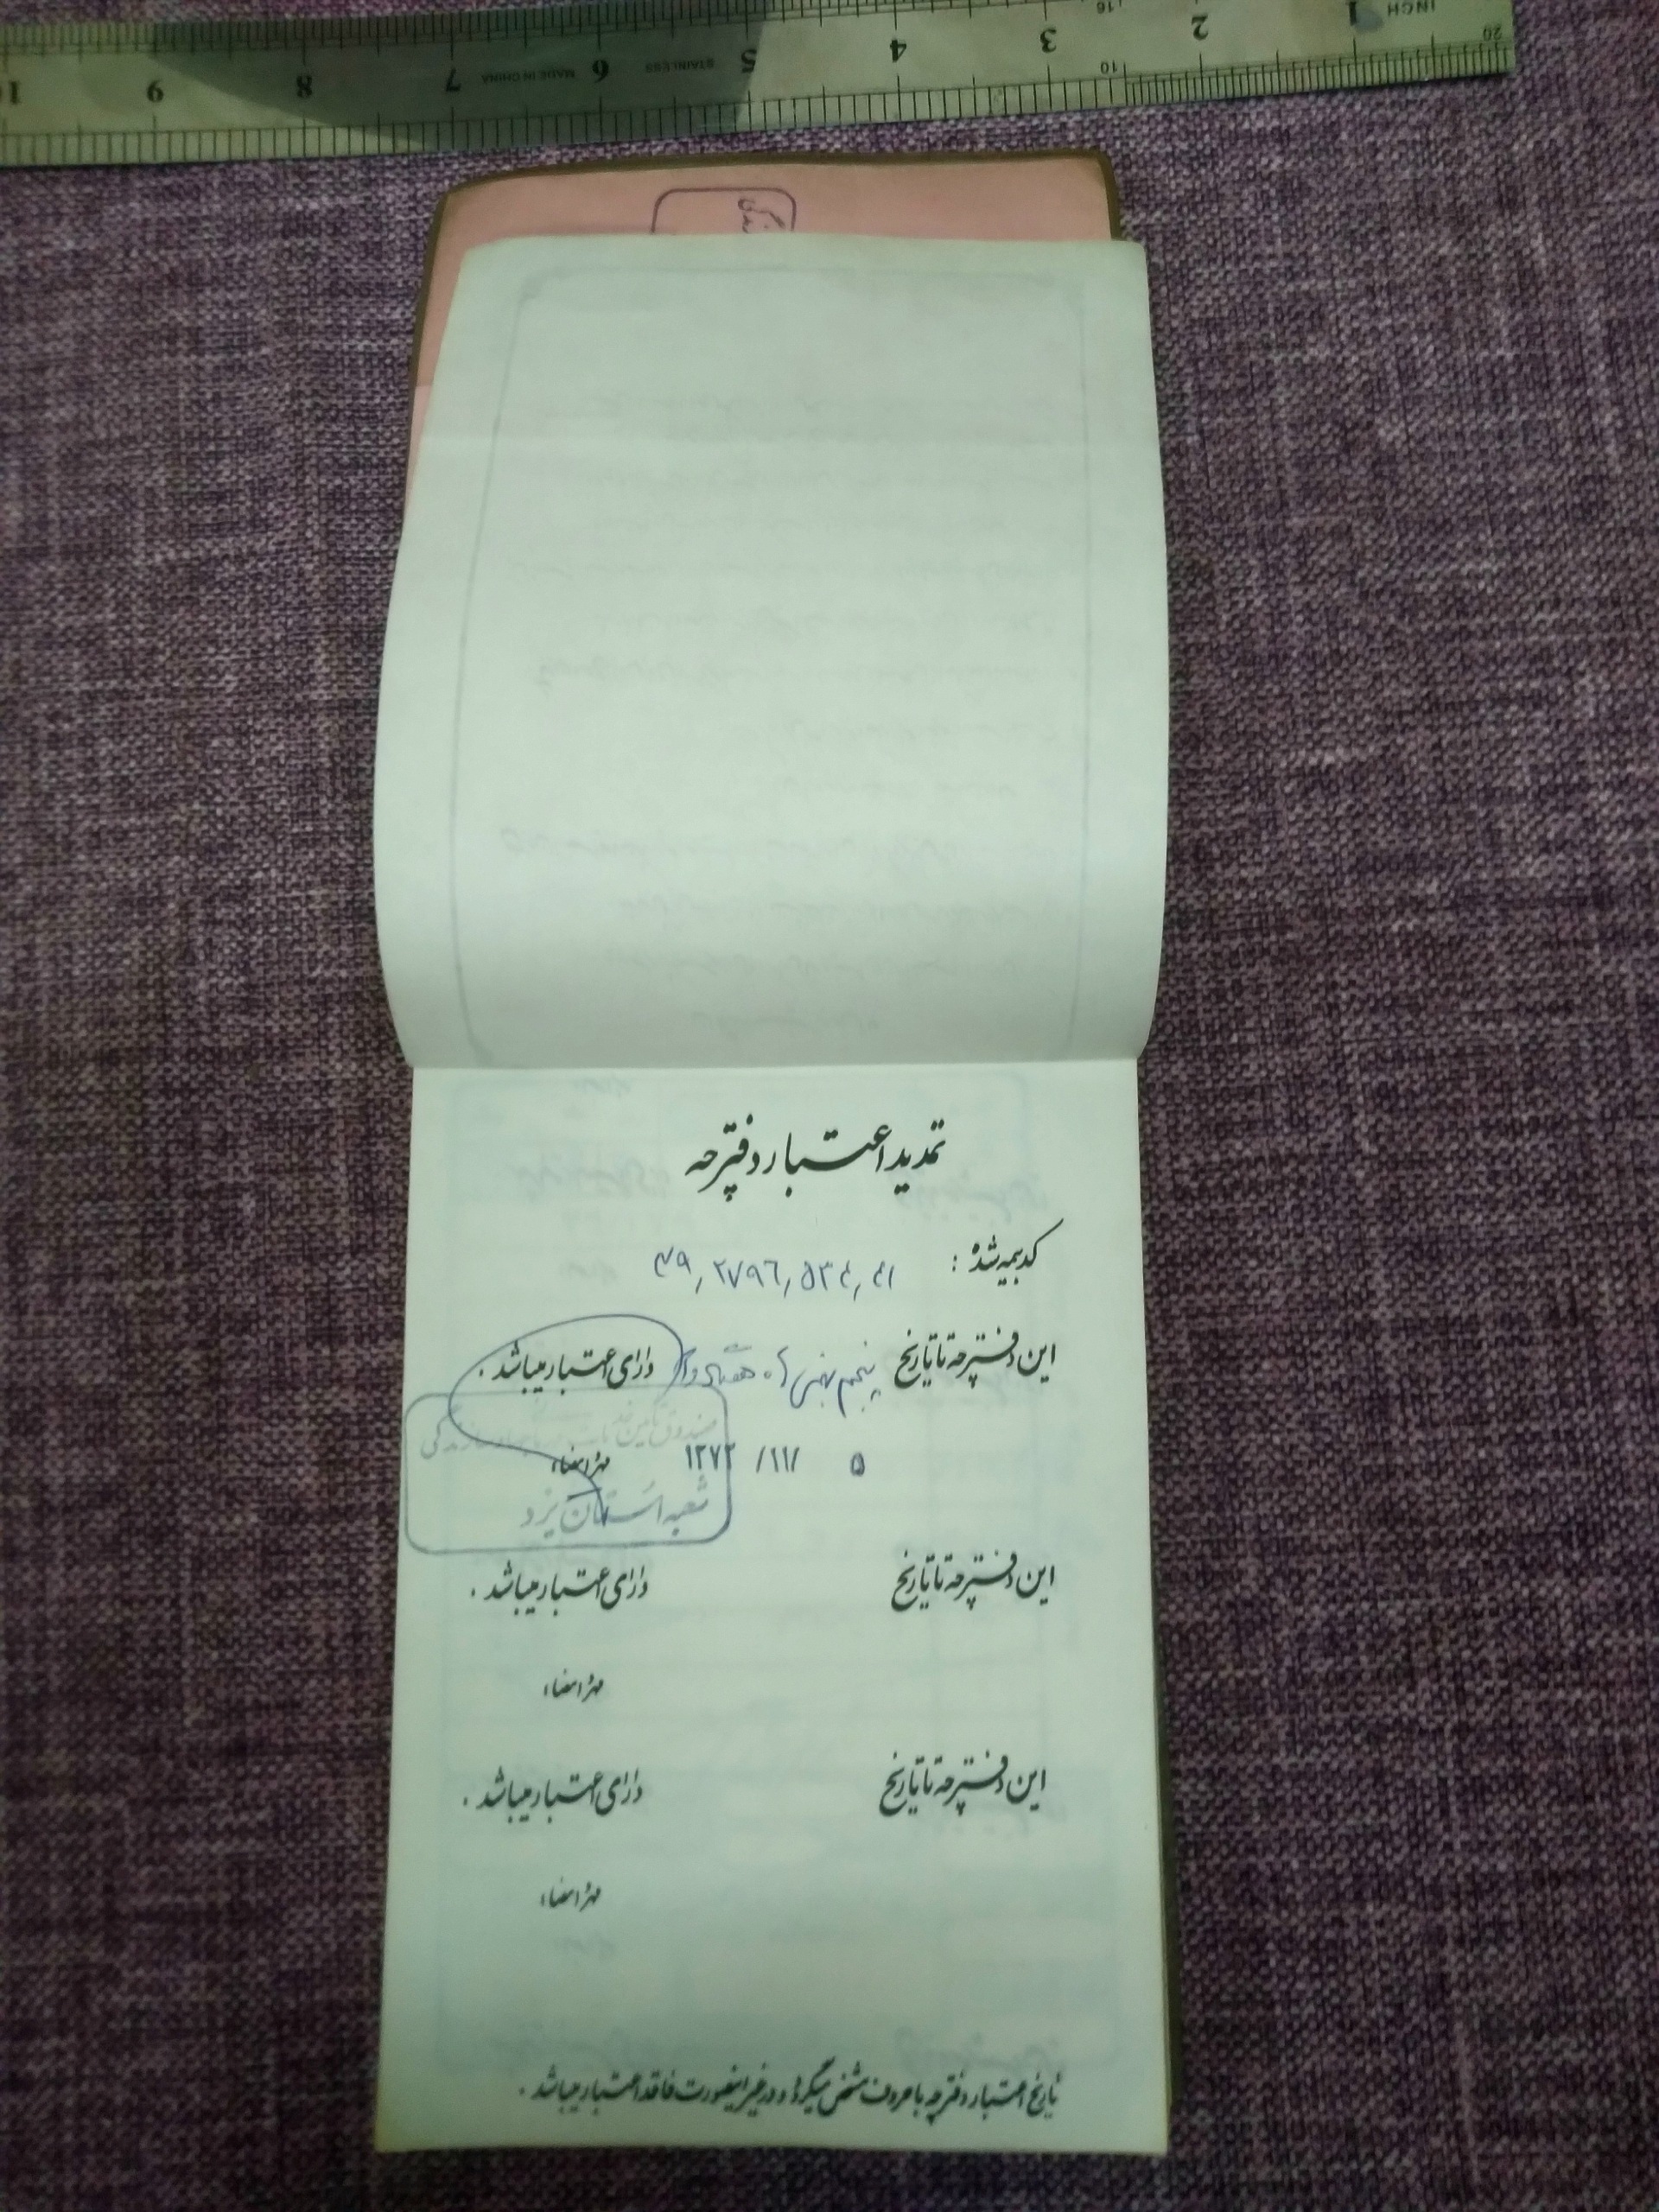 INCH 1 2 3 4 5 6 7 8 9 10
STAINLESS MADE IN CHINA
تمدید اعتبار دفترچه
کد بیمه شده :
این دفترچه تا تاریخ پنجم بهمن ماه هفتاد و دو دارای اعتبار میباشد .
۵ /۱۱/ ۱۳۷۲ مهر و امضاء:
شعبه استان یزد
این دفترچه تا تاریخ دارای اعتبار میباشد .
مهر و امضاء:
این دفترچه تا تاریخ دارای اعتبار میباشد .
مهر و امضاء:
تاریخ اعتبار دفترچه با حروف مشخص میگردد و در غیر اینصورت فاقد اعتبار میباشد .